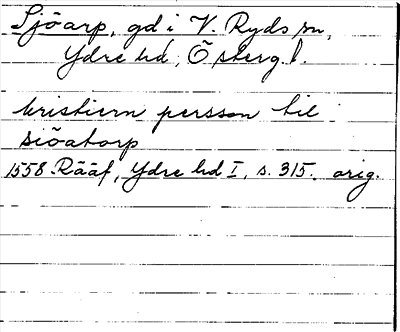 Sjöarp, gd i V. Ryds sn,
Ydre hd, Österg l.
kristiern persson til
siöatorp
1558. Rääf, Ydre hd I, s. 315. orig.